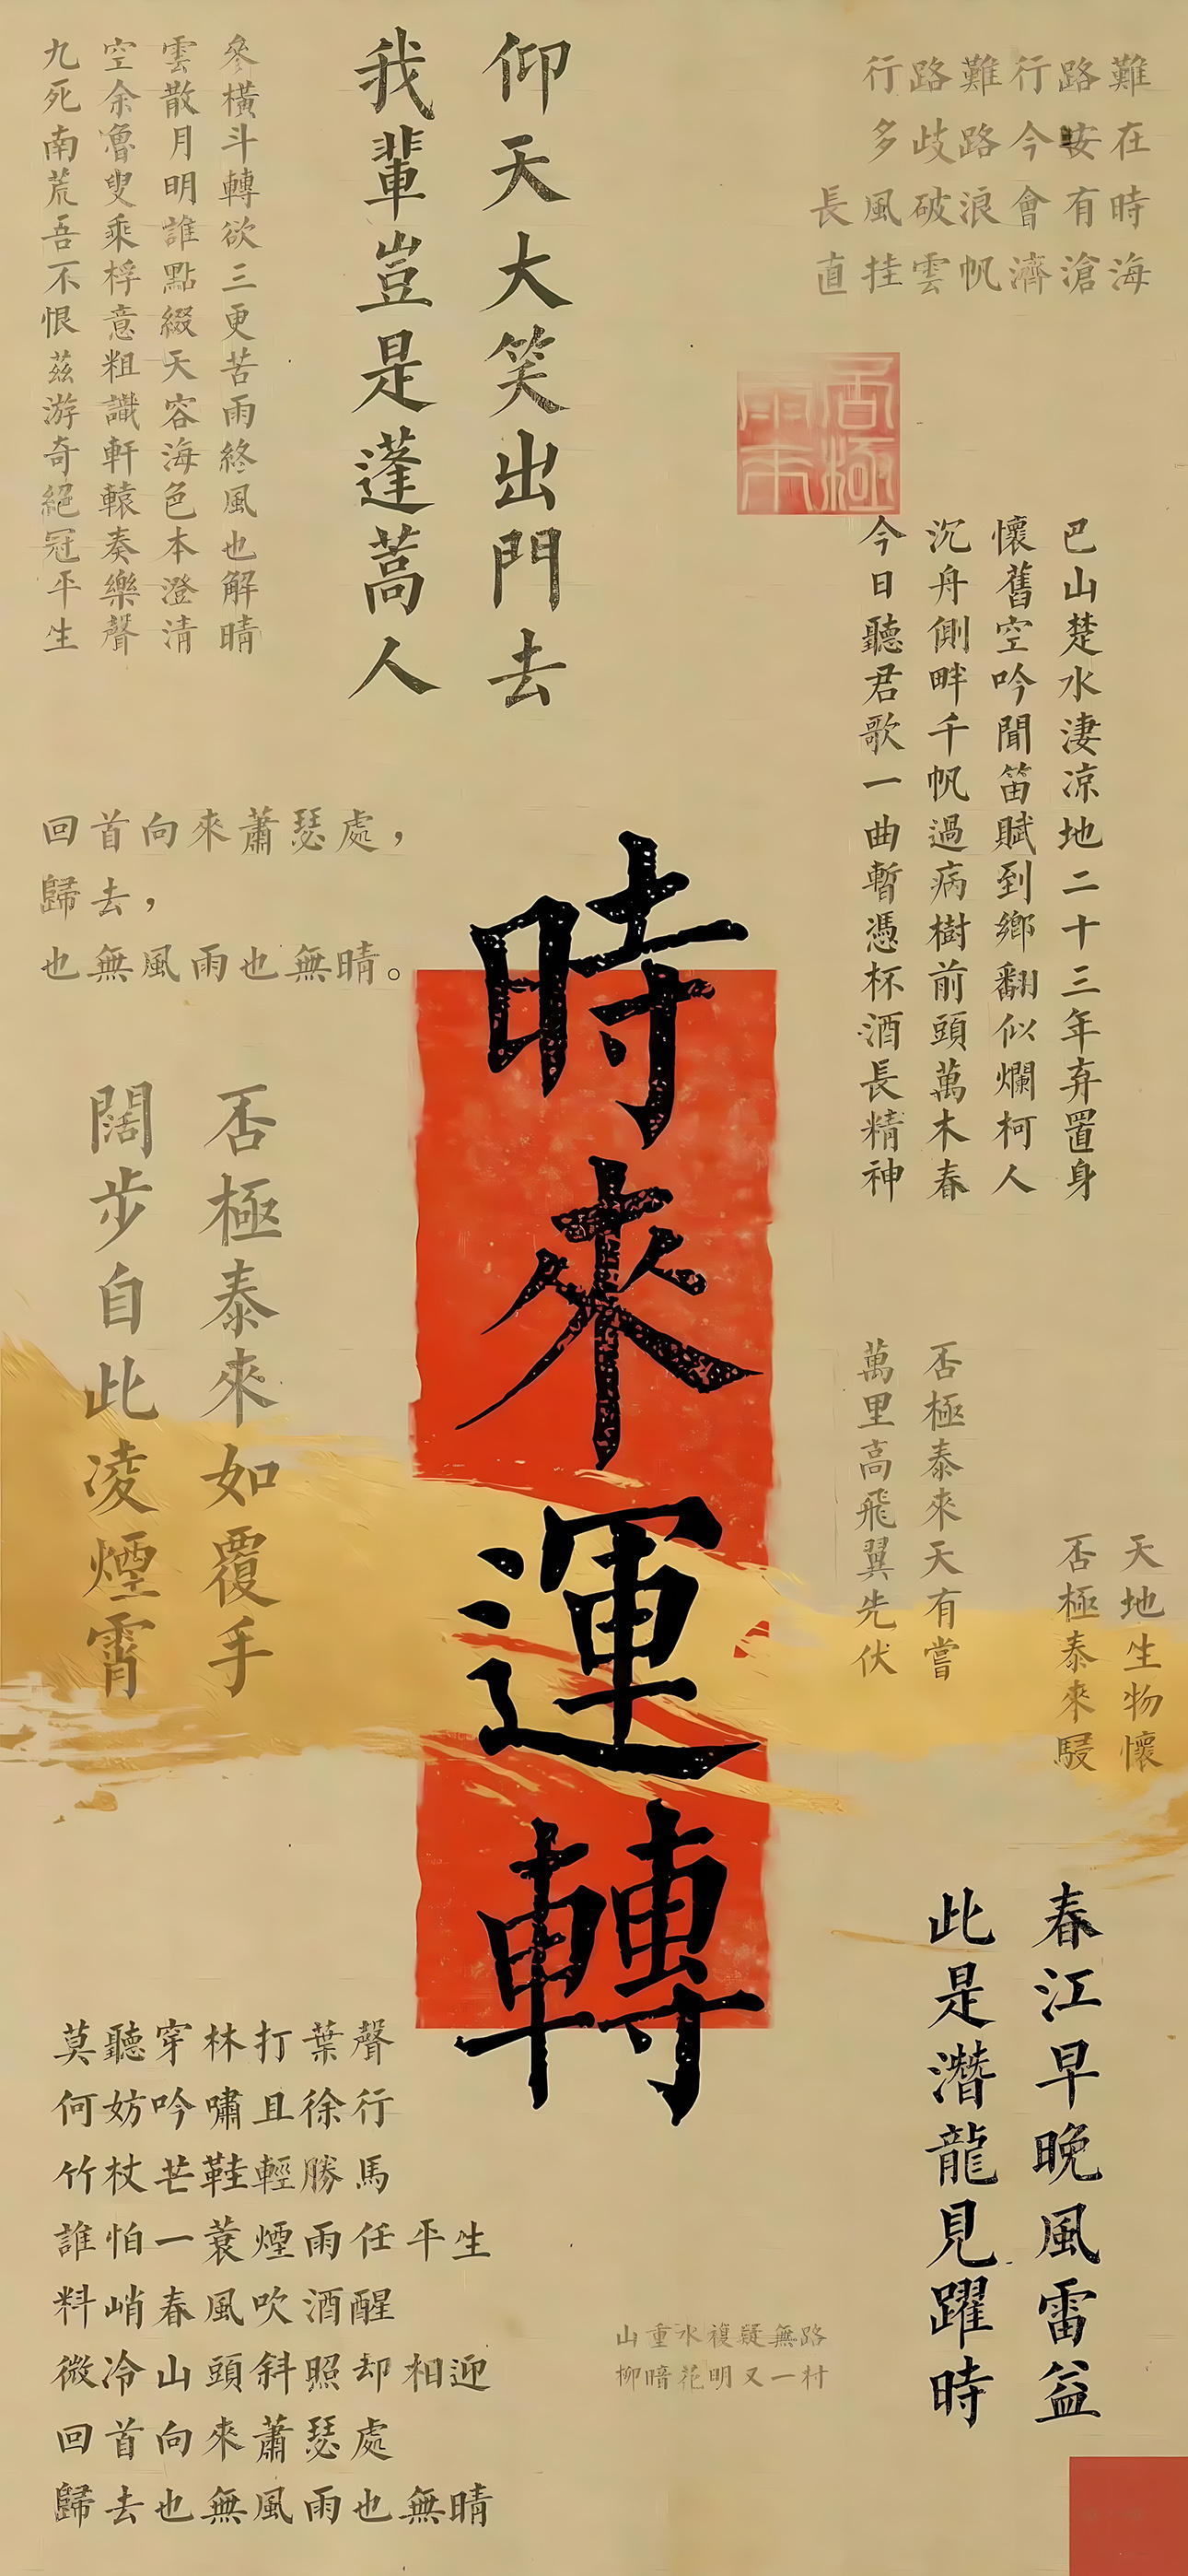 行路難行路難
多歧路今安在
長風破浪會有時
直挂雲帆濟滄海
仰天大笑出門去
我輩豈是蓬蒿人
參橫斗轉欲三更苦雨終風也解晴
雲散月明誰點綴天容海色本澄清
空余魯叟乘桴意粗識軒轅奏樂聲
九死南荒吾不恨茲游奇絕冠平生
否極
巴山楚水淒凉地二十三年弃置身
懷舊空吟聞笛賦到鄉翻似爛柯人
沉舟側畔千帆過病樹前頭萬木春
今日聽君歌一曲暫憑杯酒長精神
回首向來蕭瑟處，
歸去，
也無風雨也無晴。
時來運轉
否極泰來如覆手
闊步自此凌煙霄
否極泰來天有嘗
萬里高飛翼先伏
天地生物懷
否極泰來駸
春江早晚風雷益
此是潛龍見躍時
莫聽穿林打葉聲
何妨吟嘯且徐行
竹杖芒鞋輕勝馬
誰怕一蓑煙雨任平生
料峭春風吹酒醒
微冷山頭斜照却相迎
回首向來蕭瑟處
歸去也無風雨也無晴
山重水複疑無路
柳暗花明又一村